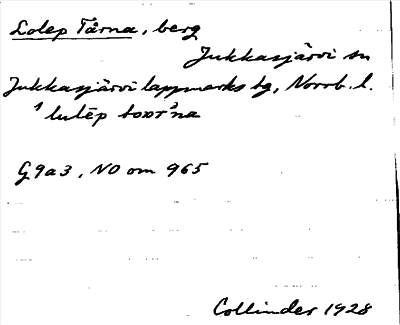 Lolep Tårna, berg
Jukkasjärvi sn
Jukkasjärvi lappmarks tg, Norrb. l.
G9a3, NO om 965
Collinder 1928